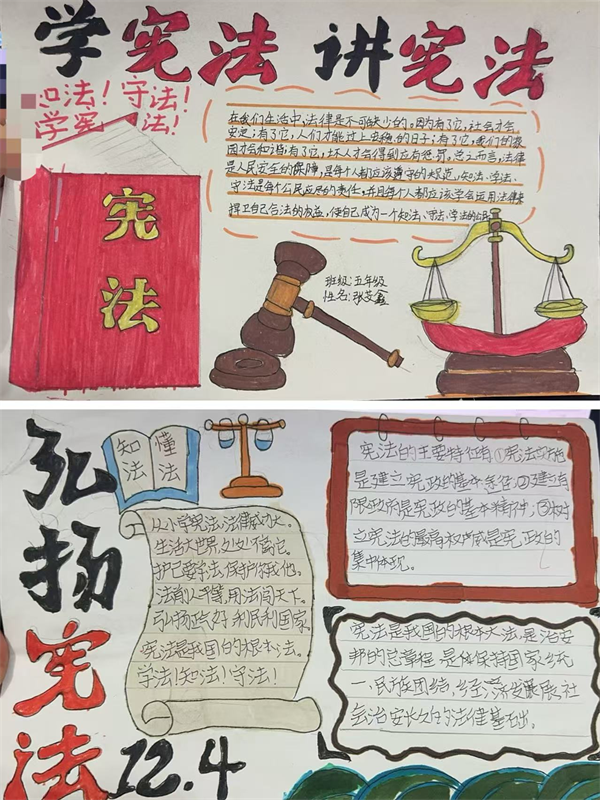 学宪法 讲宪法
知法！守法！
学宪法！
在我们生活中,法律是不可缺少的。因为有了它,社会才会
安定;有了它,人们才能过上安稳的日子;有了它,我们的祖
国才会和谐;有了它,坏人才会得到应有惩罚。总之而言,法律
是人民安全的保障,是每个人都应该遵守的规范,知法、学法、
守法是每个公民应尽的责任,并且每个人都应该学会运用法律来
捍卫自己合法的权益,使自己成为一个知法、守法、学法的
宪法
班级:五年级
性名:张艾鑫
弘扬宪法
12.4
知法
懂法
从小学宪法,法律威力大。
生活大世界,处处不离它。
护己要学法,保护你我他。
法前人平等,用法闯天下。
弘扬正气好,利民利国家。
宪法是我国的根本法。
学法!知法!守法!
宪法的主要特征有①宪法实施
是建立宪政的基本责任;②建立有
限政府是宪政的基本精神;③树
立宪法的最高权威是宪政的
集中体现。
宪法是我国的根本大法,是治安
邦的总章程,是保持国家统
一、民族团结、经济发展、社
会治安长久的法律基础。